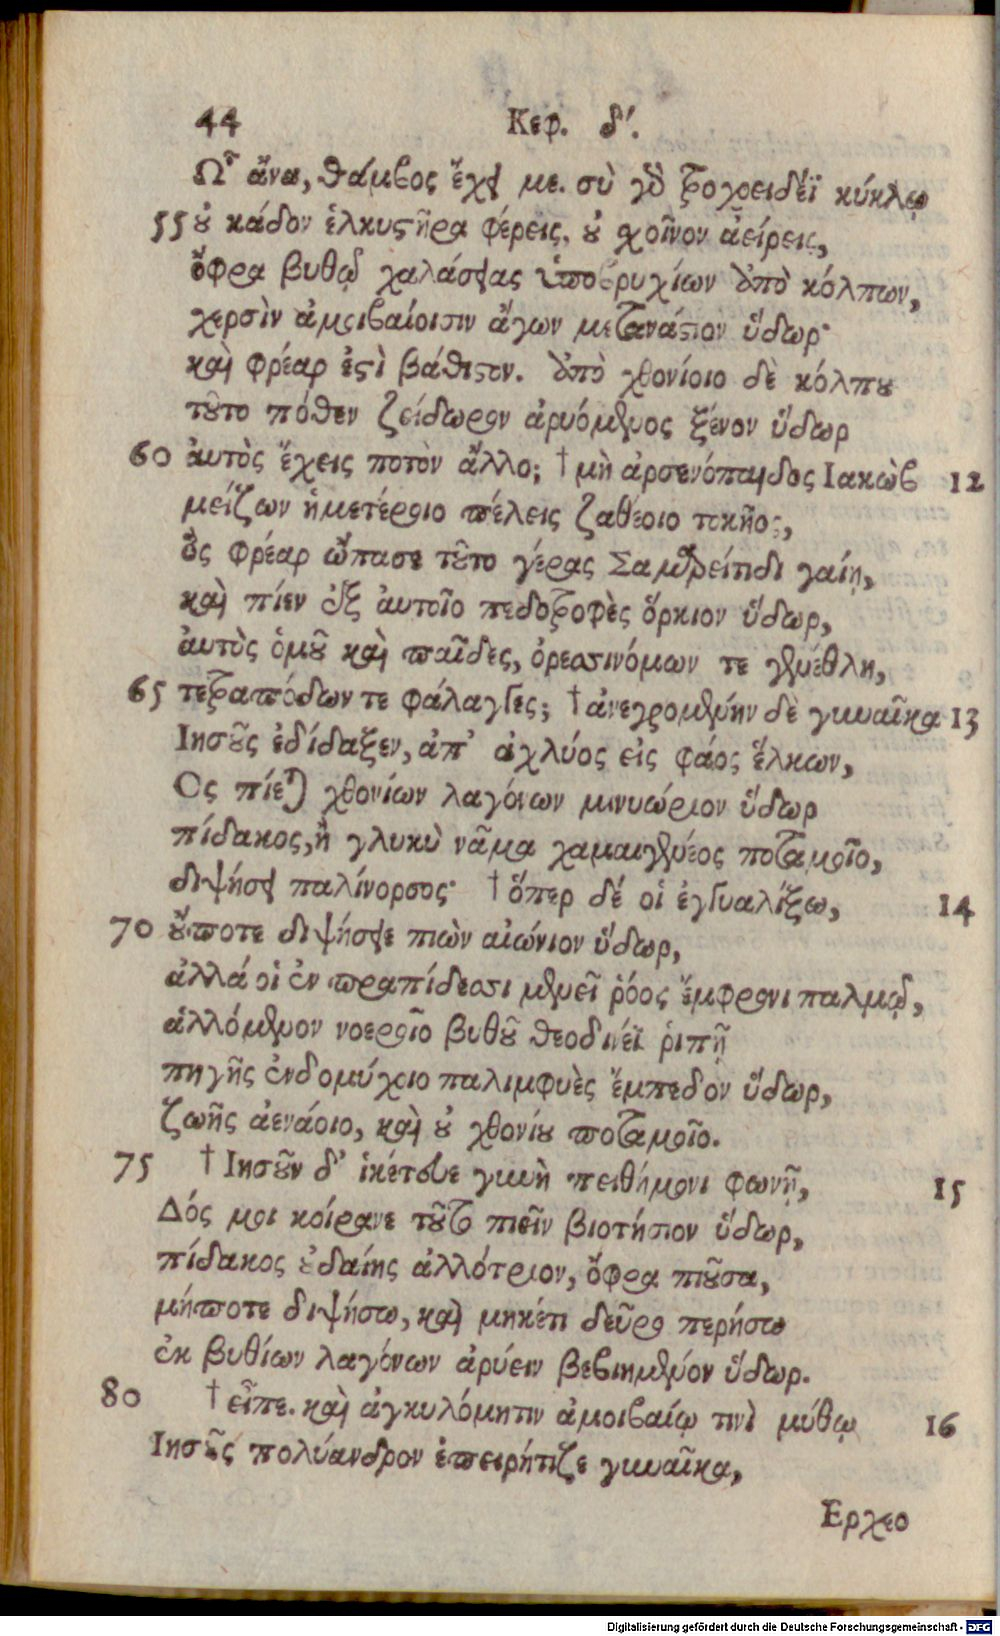 44 Κεφ. δ'.
Ὦ ἄνα, θάμβος ἔχει με. σὺ γὰρ τροχοειδέϊ κύκλῳ
55 οὐ κάδον ἑλκυστῆρα φέρεις, οὐ σχοῖνον ἀείρεις,
ὄφρα βυθῷ χαλάσειας ὑποβρυχίων ἀπὸ κόλπων,
χερσὶν ἀμοιβαίοισιν ἄγων μετανάστιον ὕδωρ·
καὶ φρέαρ ἐστὶ βάθιστον. ἀπὸ χθονίοιο δὲ κόλπου
τοῦτο πόθεν ζείδωρον ἀρυόμενος ξένον ὕδωρ
60 ἀυτὸς ἔχεις ποτὸν ἄλλο; † μὴ ἀρσενόπαιδος Ιακὼβ 12
μείζων ἡμετέροιο πέλεις ζαθέοιο τοκῆος,
ὃς φρέαρ ὤπασε τοῦτο γέρας Σαμαρείτιδι γαίῃ,
καὶ πίεν ἐξ ἀυτοῖο πεδοτροφὲς ὅρκιον ὕδωρ,
ἀυτὸς ὁμοῦ καὶ παῖδες, ὀρεσσινόμων τε γενέθλη,
65 τετραπόδων τε φάλαγγες; † ἀνεγρομένην δὲ γυναῖκα 13
Ιησοῦς ἐδίδαξεν, ἀπ' ἀχλύος εἰς φάος ἕλκων,
Ος πίεται χθονίων λαγόνων μινυώριον ὕδωρ
πίδακος, ἢ γλυκὺ νᾶμα χαμαιγενέος ποταμοῖο,
διψήσει παλίνορσος· † ὅπερ δέ οἱ ἐγγυαλίξω, 14
70 οὔποτε διψήσειε πιὼν αἰώνιον ὕδωρ,
ἀλλά οἱ ἐν πραπίδεσσι μενεῖ ῥόος ἔμφρονι παλμῷ,
ἁλλόμενον νοεροῖο βυθοῦ θεοδινέϊ ῥιπῇ
πηγῆς ἐνδομύχοιο παλιμφυὲς ἔμπεδον ὕδωρ,
ζωῆς ἀενάοιο, καὶ οὐ χθονίου ποταμοῖο.
75 † Ιησοῦν δ' ἱκέτευε γυνὴ πειθήμονι φωνῇ, 15
Δός μοι κοίρανε τοῦτο πιεῖν βιοτήσιον ὕδωρ,
πίδακος οὐδαίης ἀλλότριον, ὄφρα πιοῦσα,
μήποτε διψήσω, καὶ μηκέτι δεῦρο περήσω
ἐκ βυθίων λαγόνων ἀρύειν βεβιημένον ὕδωρ.
80 † εἶπε. καὶ ἀγκυλόμητιν ἀμοιβαίῳ τινὶ μύθῳ 16
Ιησοῦς πολύανδρον ἐπειρήτιζε γυναῖκα,
Ερχεο
Digitalisierung gefördert durch die Deutsche Forschungsgemeinschaft - DFG